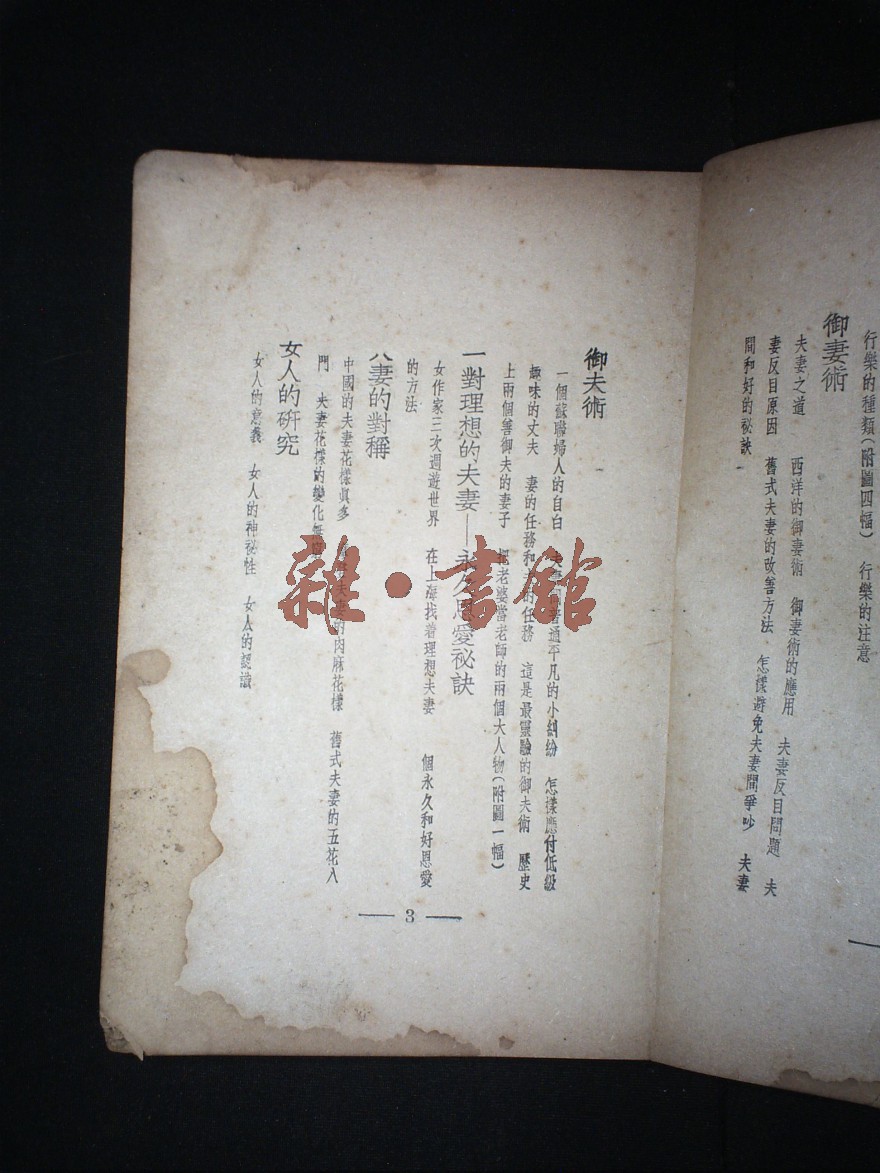 行樂的種類(附圖四幅) 行樂的注意
御妻術
夫妻之道 西洋的御妻術 御妻術的應用 夫妻反目問題 夫
妻反目原因 舊式夫妻的改善方法 怎樣避免夫妻間爭吵 夫妻
間和好的祕訣
御夫術
一個蘇聯婦人的自白 普通平凡的小糾紛 怎樣應付低級
趣味的丈夫 妻的任務和 的任務 這是最靈驗的御夫術 歷史
上兩個善御夫的妻子 把老婆當老師的兩個大人物(附圖一幅)
一對理想的夫妻—永久恩愛祕訣
女作家三次週遊世界 在上海找着理想夫妻 個永久和好恩愛
的方法
八妻的對稱
中國的夫妻花樣眞多 夫妻的肉麻花樣 舊式夫妻的五花八
門 夫妻花樣的變化無窮
女人的研究
女人的意義 女人的神祕性 女人的認識
3
雜·書館